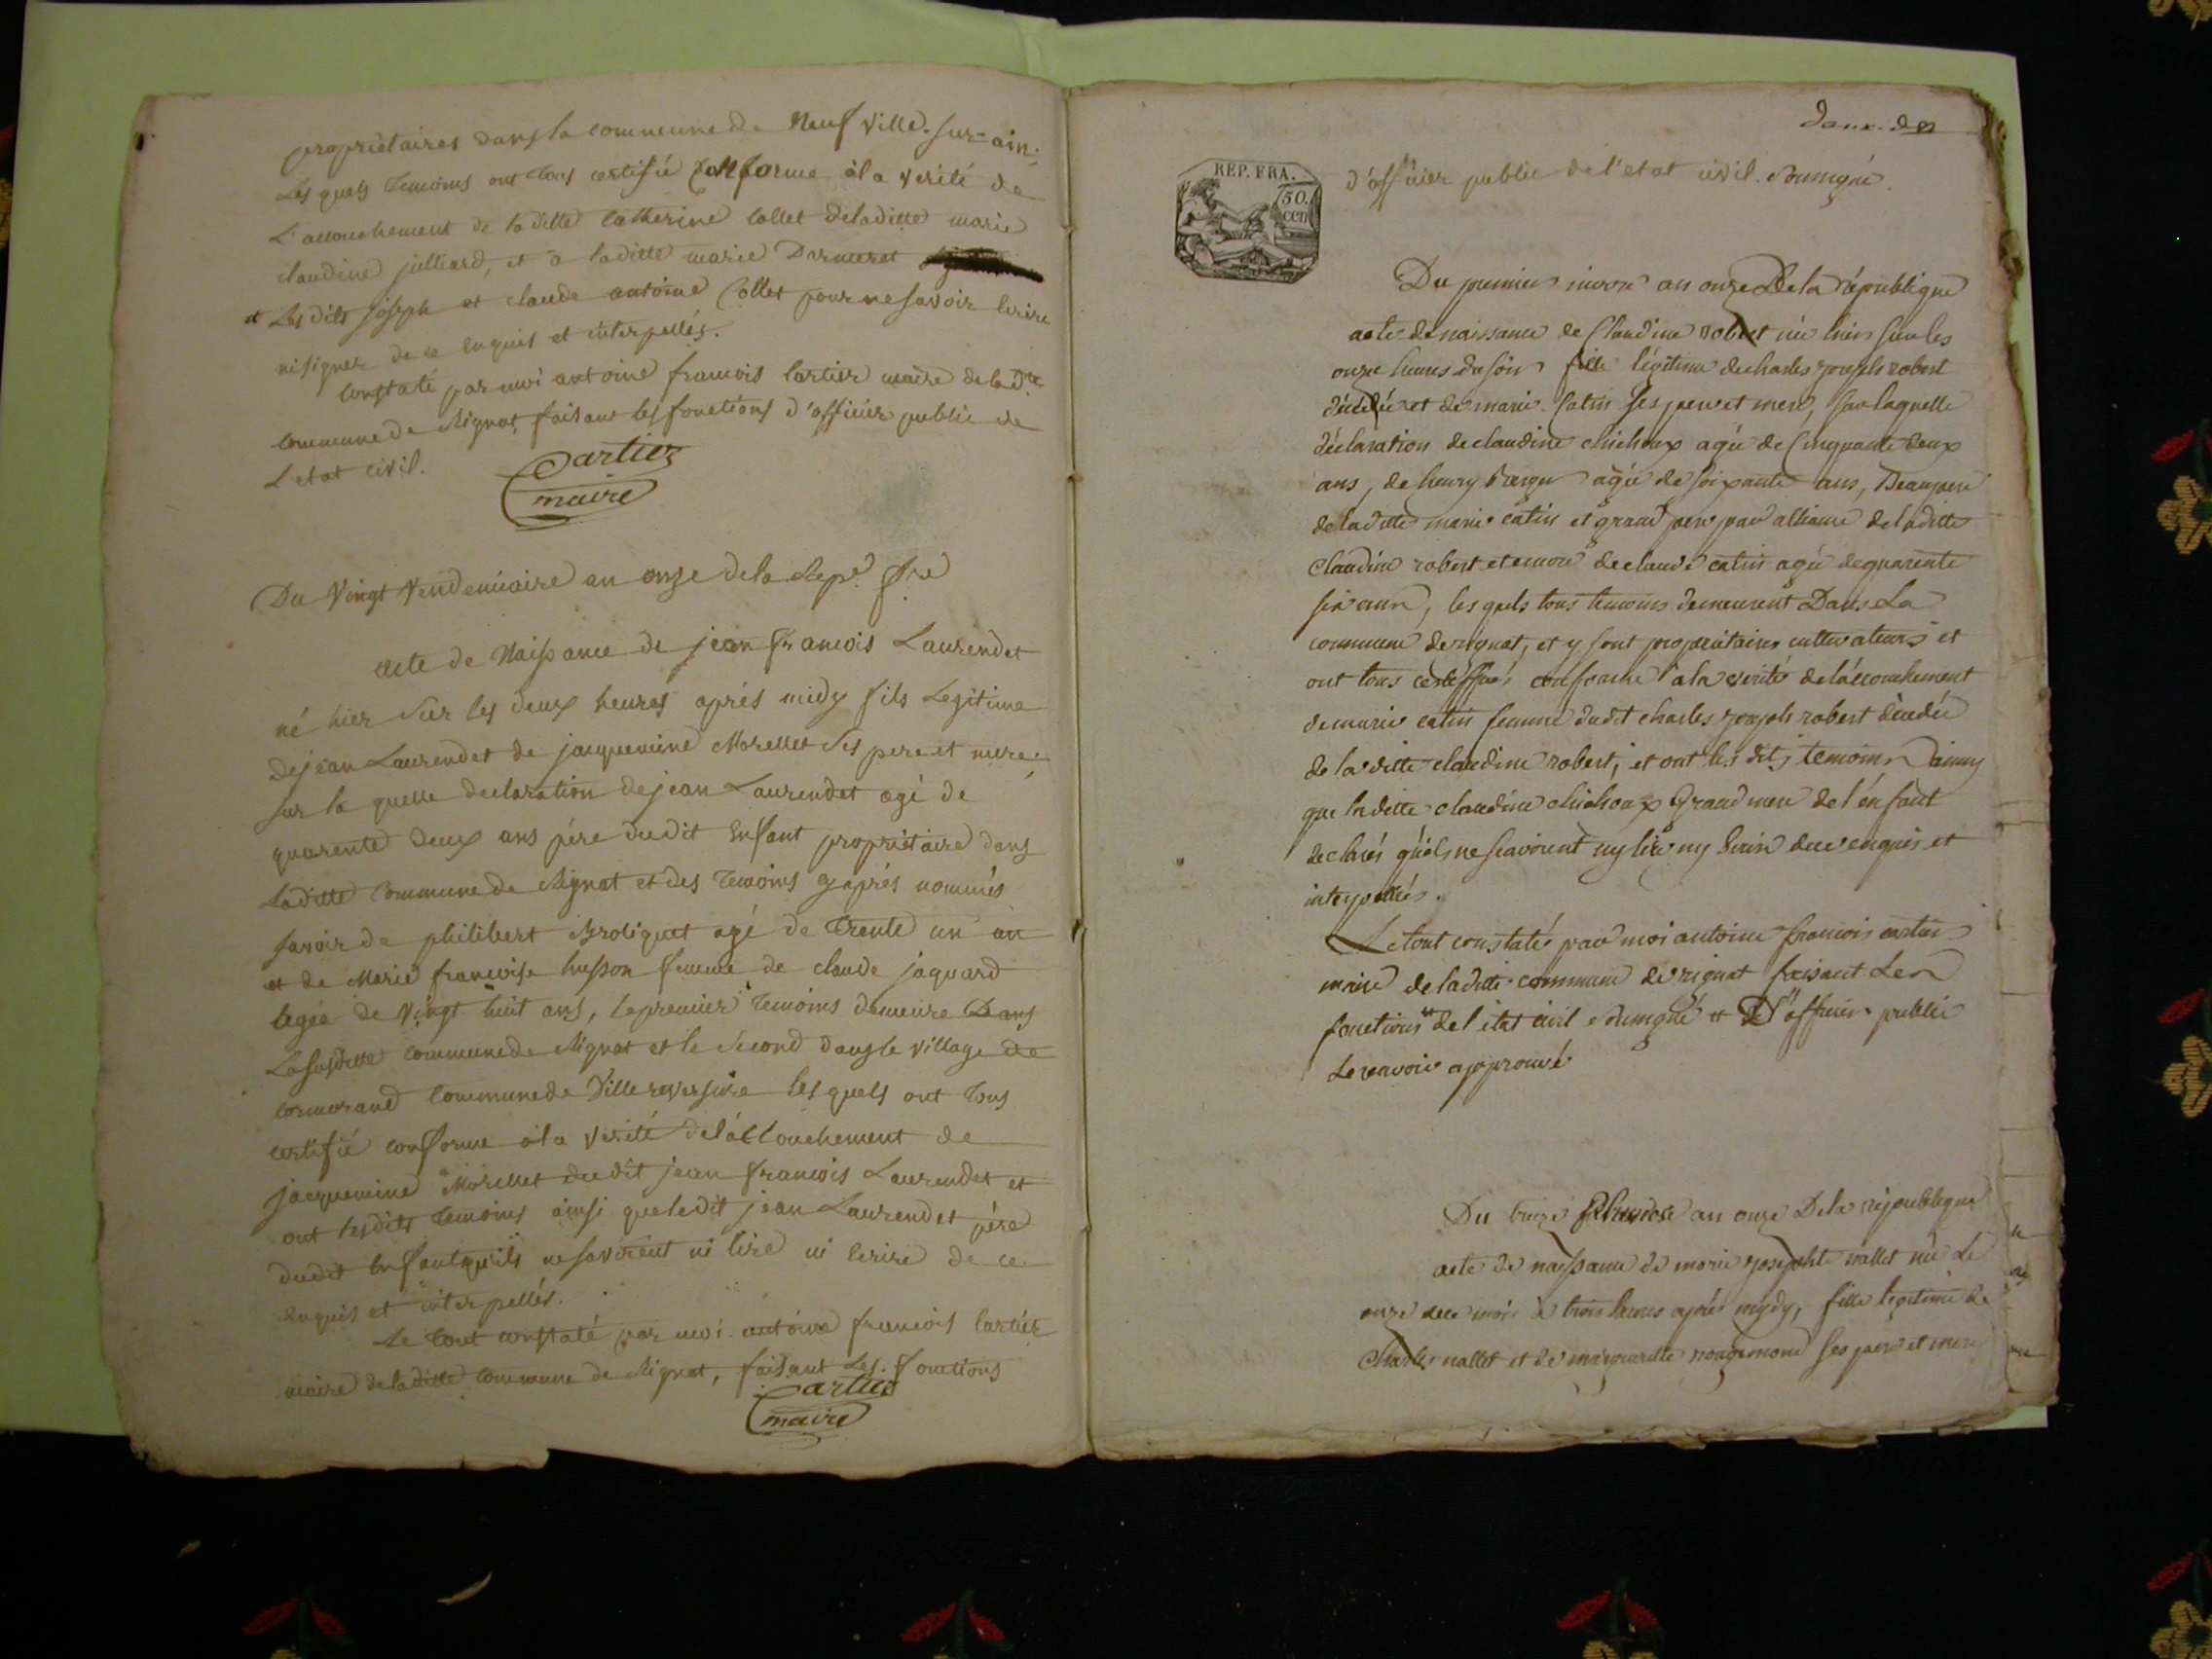 propriètaires dans la commune de Neuf Ville-sur-ain;
Les quels Temoins ont tous certifié conforme à la verité de
L'accouchement de la ditte catherine collet de la ditte marie
claudine julliard, et à la ditte marie
et Les dits joseph et claude antoine Collet pour ne savoir Ecrire
ni signer de ce Enquis et interpellés.
Constaté par moi antoine francois Cartier maire de la dte
commune de Rignat faisant les fonctions d'officier public de
L'etat civil.
Cartier
maire
Du Vingt Vendemiaire an onze de la Repe fse
acte de Naissance de jean francois Laurendet
né hier sur les deux heures aprés midy fils Legitime
de jean Laurendet de jacquemine Morellet ses pere et mere
sur la quelle declaration de jean Laurendet agé de
quarente deux ans pére dudit Enfant propriètaire dans
laditte Commune de Rignat et des Temoins y aprés nommés
savoir de philibert Broliquet agé de Trente un an
et de Marie francoise husson femme de claude jaquard
agée de Vingt huit ans, le premier Temoins demeure Dans
La susditte commune de Rignat et le second dans le village de
cormorand Commune de Villereversure les quels ont Tous
certifié conforme à la Verité de l'accouchement de
jacquemine Morellet du dit jean francois Laurendet et
ont lesdits Temoins ainsi que le dit jean Laurendet pére
dudit Enfant qu'ils ne savoient ni lire ni Ecrire de ce
Enquis et interpellés.
Le Tout constaté par moi antoine francois Cartier
maire de la ditte commune de Rignat, faisant Les fonctions
Cartier
maire
REP. FRA.
50.
cen
d'officier public de l'etat civil soussigné.
Du premier nivose an onze De la république
acte de naissance de Claudine robert née hier sur les
onze heures du soir fille légitime de charles joseph robert
décédée et de marie Catin ses pere et mere, sur laquelle
déclaration de claudine chichoux agée de Cinquante deux
ans, de henry agée de soixante ans, Beaupere
de laditte marie catin et grand pere par alliance de laditte
Claudine robert et encore de claude catin agée de quarente
six ans, les quels tous temoins demeurent Dans La
commune de rignat, et y sont propriétaires cultivateurs et
ont tous certiffiés conforme à la verité de l'áccouchement
de marie catin femme dudit charles joseph robert décédée
de la ditte claudine robert, et ont les dits temoins ainsy
que la ditte claudine chichoux Grand mere de l'énfant
declarés qu'ils ne sçavoient ny lire ny Ecrire de ce enquis et
interpellés.
Le tout constaté par moi antoine francois cartier
maire de laditte commune de rignat faisant Les
fonctions de l'état civil soussigné et D'officier public
Le renvoie approuvé
Du treize pluviose an onze De la république
acte de naissance de marie josephte nallet née Le
onze du mois à trois heures après mydy, fille legitime de
Charles nallet et de marguerite rougemond ses pere et mere